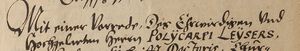 Mit einer Vorrede, Des Ehrwirdigen und
Hochgelerten Herrn POLYCARPI LEYSERS,
Doctoris,